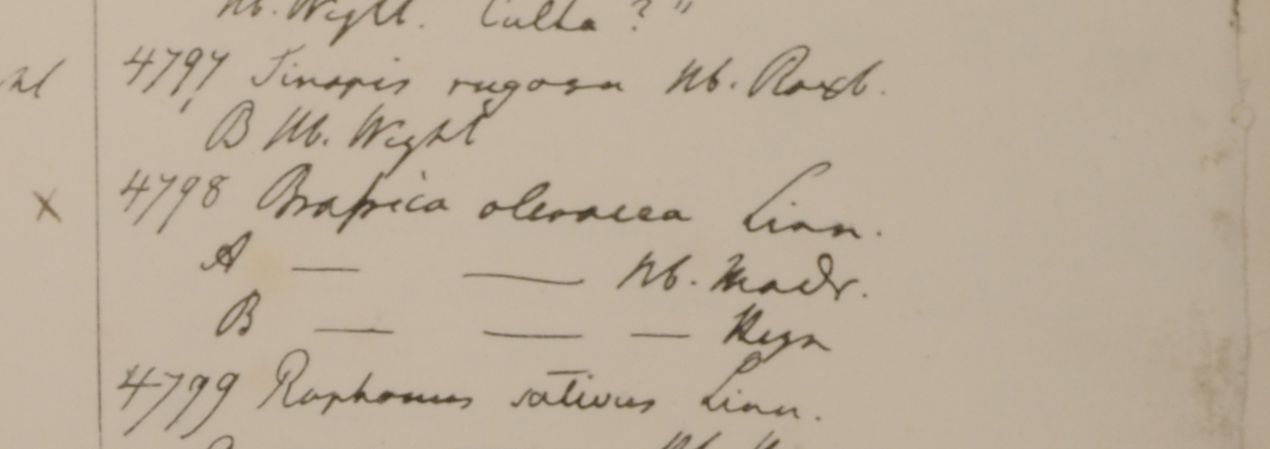 Hb. Wight. Culta?"
4797 Sinapis rugosa Hb. Roxb.
B Hb. Wight
X 4798 Brassica oleracea Linn.
A — — Hb. Madr.
B — — — Heyn
4799 Raphanus sativus Linn.